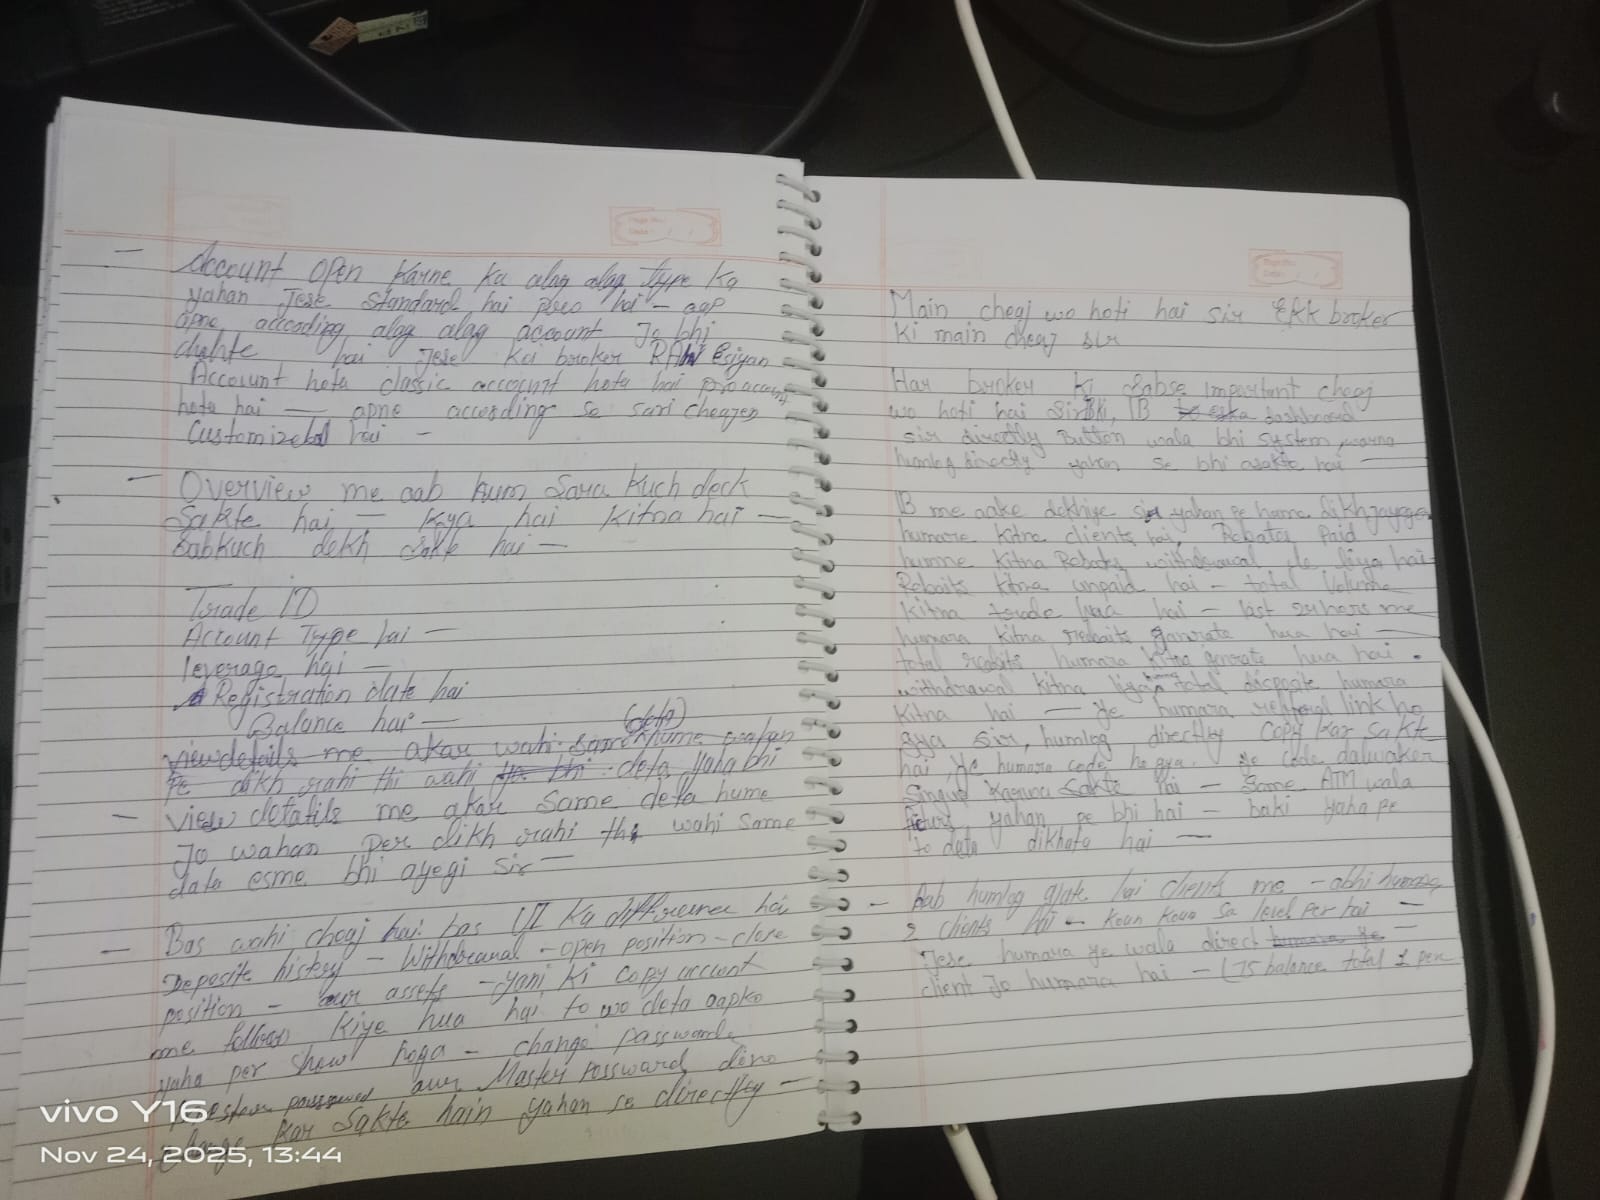 — Account open karne ka alag alag type ka
yahan Jese standard hai pro hai — aap
apne accoding alag alag account Jo bhi
chahte hai Jese koi broker
Account hota classic account hota hai pro account
hota hai — apne according se sari cheajen
Customized hai —
— Overview me aab hum Sara kuch deck
Sakte hai — Kya hai kitna hai —
Sabkuch dekh sakte hai —
Trade ID
Account Type hai —
leverage hai —
Registration date hai
Balance hai —
(data)
viewdetails me akar wahi same hume wahan
pe dikh rahi thi wahi deta yaha bhi
— view detatils me akar Same deta hume
Jo wahan per dikh rahi thi wahi same
data esme bhi ayegi sir —
— Bas wahi cheaj hai bas UI ka difference hai
Deposite history — Withdrawal — open position — close
position — aur assets — yani ki copy account
me follow kiye hua hai to wo deta aapko
yaha per show hoga — change password
password aur Master password dono
change kar Sakte hain yahan se directly —
Main cheaj wo hoti hai sir Ekk broker
Ki main cheaj sir
Har broker ki Sabse important cheaj
wo hoti hai Sir IB dashboard
sir directly Button wala bhi system warna
humlog directly yahan se bhi asakte hai —
IB me aake dekhiye sir yahan pe hame dikhjayega
humare kitne clients hai, Rebates Paid
humne kitna Rebates withdrawal le liya hai
Rebaits kitna unpaid hai — total Volume
kitna trade hua hai — last 24 hors me
humara kitna rebaits generate hua hai —
total rebaits humara kitna generate hua hai.
withdrawal kitna liya total deposite humara
kitna hai — ye humara referral link ho
gya sir, humlog directly copy kar sakte
hai, ye humara code ho gya. ye code dalwaker
Singup karwa sakte hai — same ATM wala
yahan pe bhi hai — baki yaha pe
to data dikhata hai —
— Aab humlog ate hai clients me — abhi humare
2 clients hai — koun koun sa level per hai —
Jese humara ye wala direct —
client Jo humara hai — (75 balance total 1 per
vivo Y16
Nov 24, 2025, 13:44